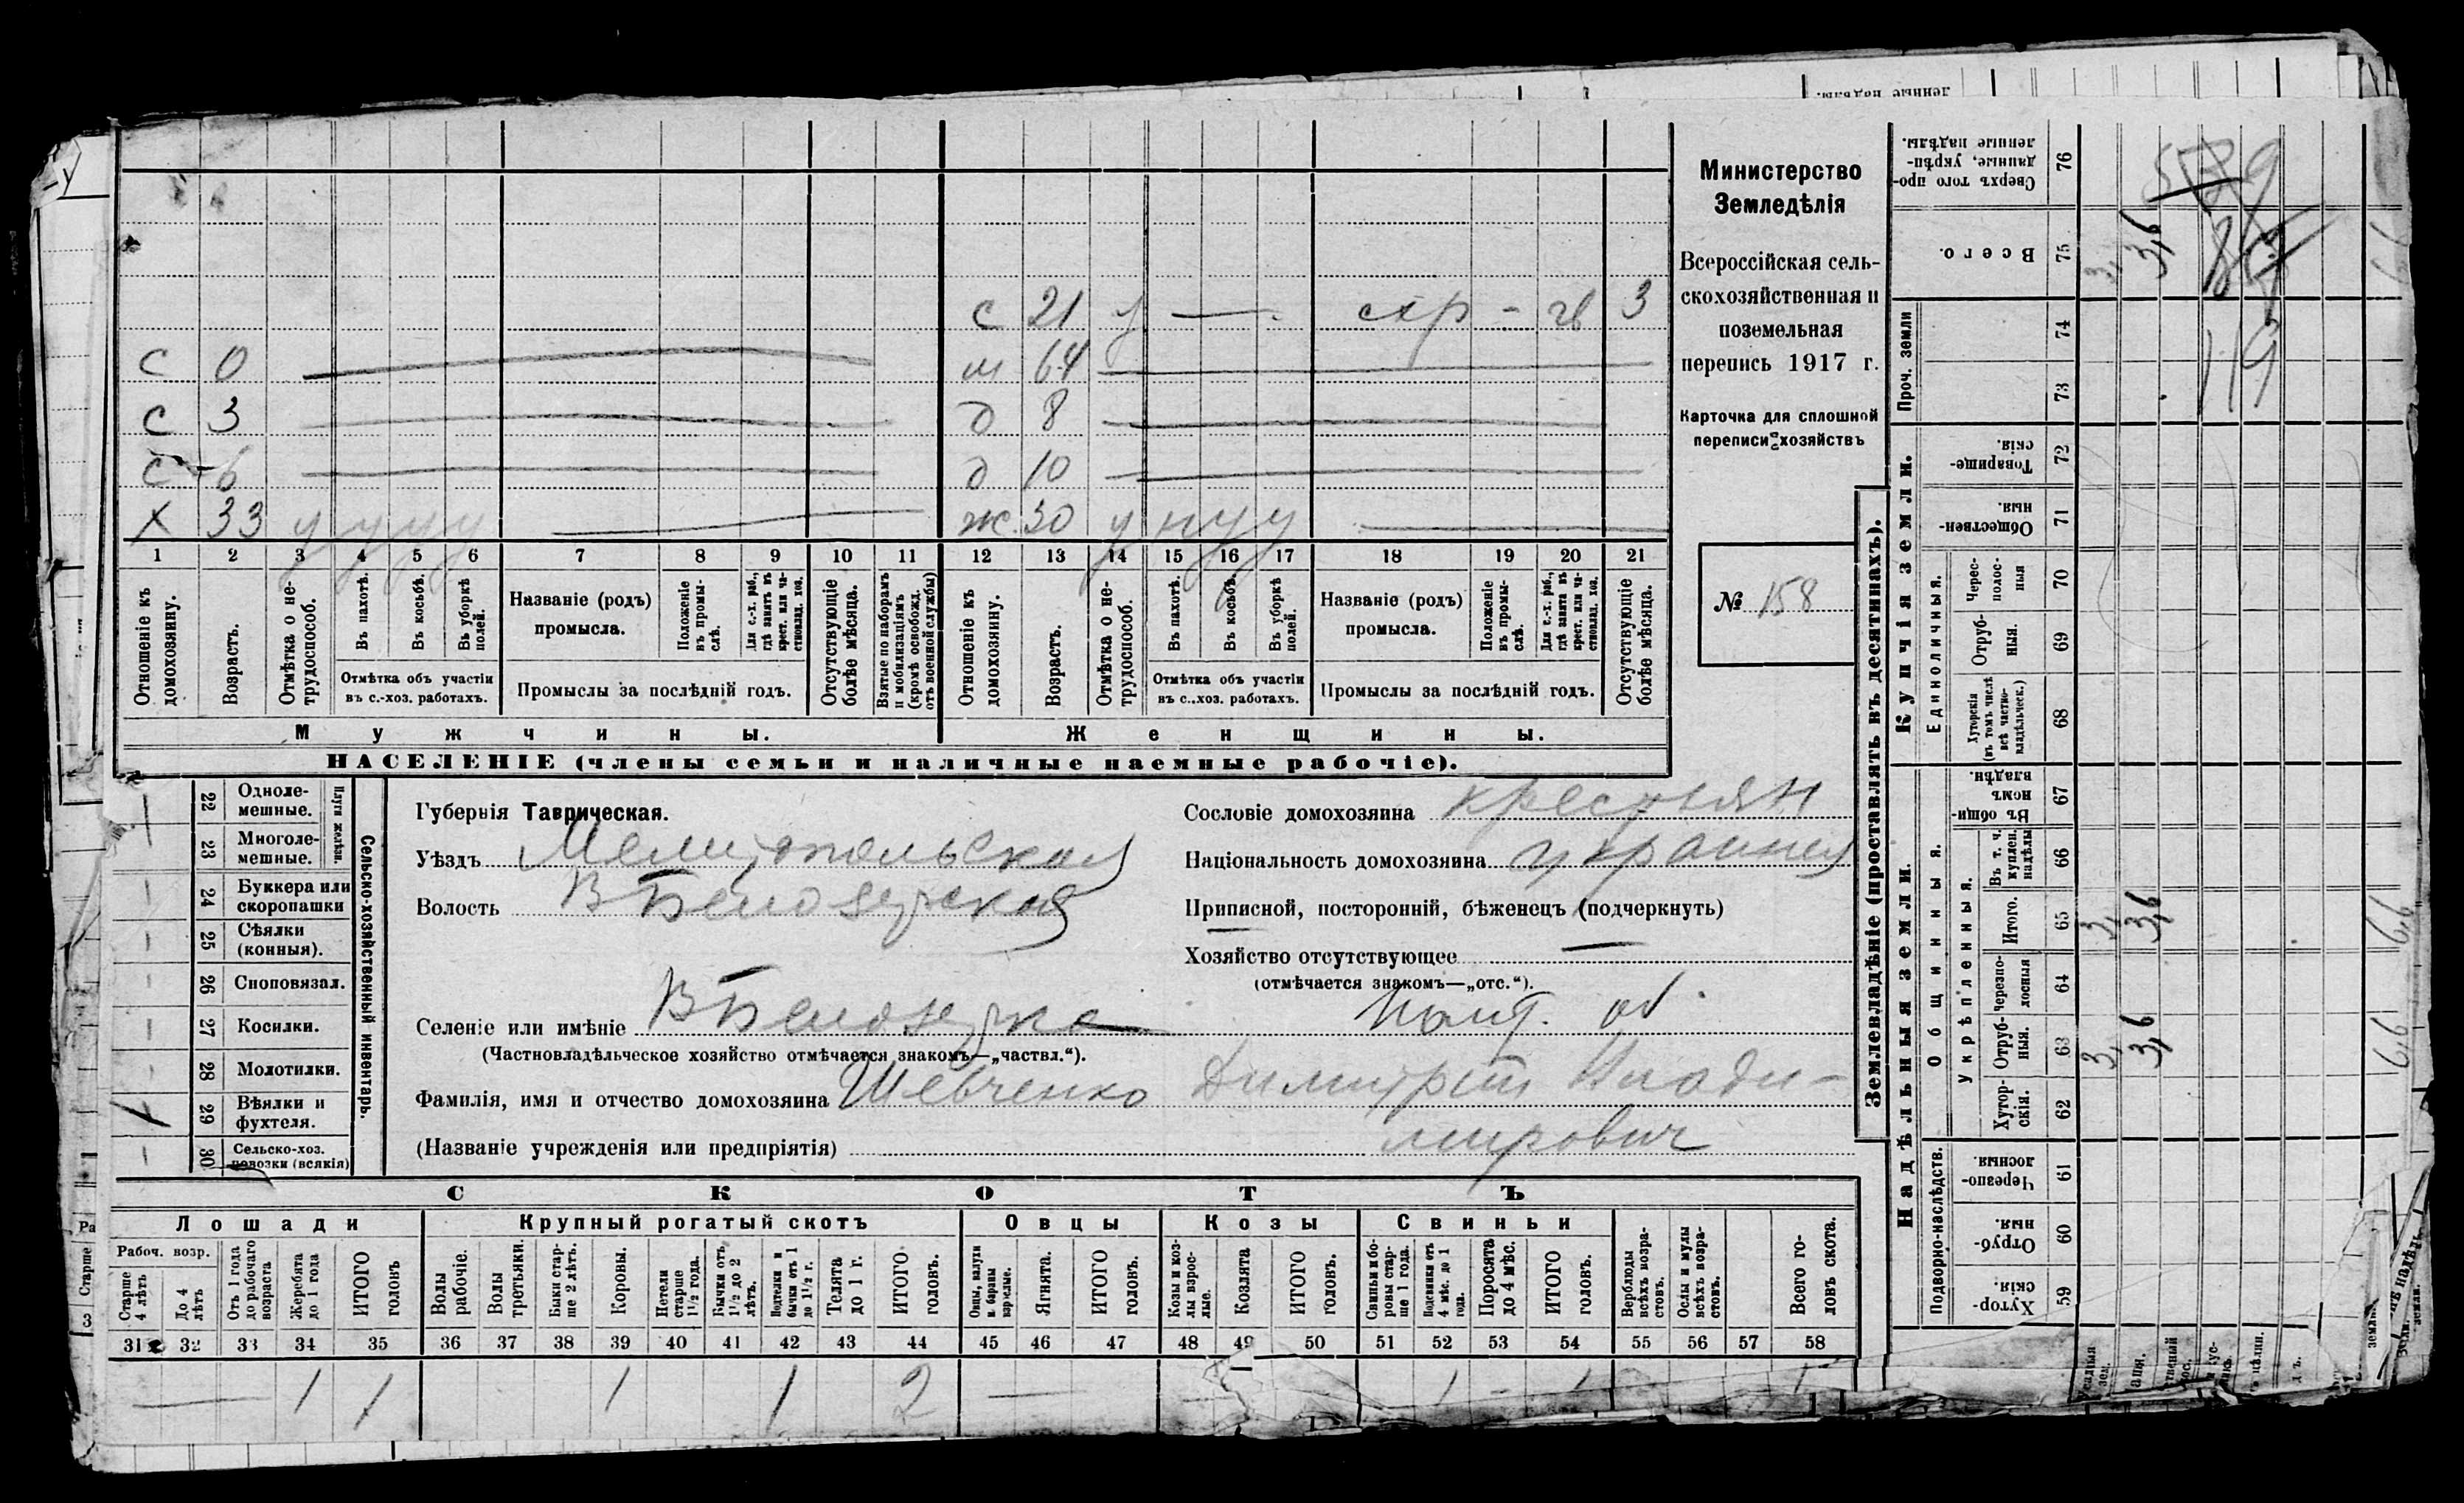 Министерство
Земледѣлія
Всероссійская сель-
скохозяйственная и
поземельная
перепись 1917 г.
Карточка для сплошной
переписи хозяйствъ
№ 158
с 21 у — схр - 3
с 0 м 64
с 3 д 8
с 6 д 10
х 33 у у у у ж 30 у н у у
1 2 3 4 5 6 7 8 9 10 11 12 13 14 15 16 17 18 19 20 21
Отношеніе къ домохозяину.
Возрастъ.
Отмѣтка о не-трудоспособ.
Въ пахотѣ.
Въ косьбѣ.
Въ уборкѣ полей.
Отмѣтка объ участіи
въ с.-хоз. работахъ.
Названіе (родъ)
промысла.
Положеніе въ промы-слѣ.
Для с.-х. раб., гдѣ занятъ въ крест. или ча-стновлад. хоз.
Промыслы за послѣдній годъ.
Отсутствующіе болѣе мѣсяца.
Взятые по наборамъ и мобилизаціямъ (кромѣ освобожд. отъ военной службы)
Отношеніе къ домохозяину.
Возрастъ.
Отмѣтка о не-трудоспособ.
Въ пахотѣ.
Въ косьбѣ.
Въ уборкѣ полей.
Отмѣтка объ участіи
въ с.-хоз. работахъ.
Названіе (родъ)
промысла.
Положеніе въ промы-слѣ.
Для с.-х. раб., гдѣ занята въ крест. или ча-стновлад. хоз.
Промыслы за послѣдній годъ.
Отсутствующіе болѣе мѣсяца.
Мужчины. Женщины.
НАСЕЛЕНІЕ (члены семьи и наличные наемные рабочіе).
22 Одноле-мешные.
23 Многоле-мешные.
Плуги желѣзн.
24 Буккера или скоропашки
25 Сѣялки (конныя).
26 Сноповязал.
27 Косилки.
28 Молотилки.
29 Вѣялки и фухтеля.
30 Сельско-хоз. повозки (всякія)
Сельско-хозяйственный инвентарь.
Губернія Таврическая.
Уѣздъ Мелитопольской
Волость В Белозерской
Селеніе или имѣніе В Белозерка
(Частновладѣльческое хозяйство отмѣчается знакомъ—„частвл.“).
Фамилія, имя и отчество домохозяина Шевченко Димитрий Влади-
(Названіе учрежденія или предпріятія) мирович
Сословіе домохозяина крестьян
Національность домохозяина украинец
Приписной, посторонній, бѣженецъ (подчеркнуть)
Хозяйство отсутствующее —
(отмѣчается знакомъ—„отс.“).
СКОТЪ
Лошади Крупный рогатый скотъ Овцы Козы Свиньи
Рабоч. возр.
Старше 4 лѣтъ
До 4 лѣтъ
Отъ 1 года до рабочаго возраста
Жеребята до 1 года
ИТОГО головъ
Волы рабочіе.
Волы третьяки.
Быки стар-ше 2 лѣтъ.
Коровы.
Нетели старше 1½ года.
Бычки отъ 1½ до 2 лѣтъ.
Нетелки и бычки отъ 1 до 1½ г.
Телята до 1 г.
ИТОГО головъ.
Овцы, валухи и бараны взрослые.
Ягнята.
ИТОГО головъ.
Козы и коз-лы взрос-лые.
Козлята
ИТОГО головъ.
Свиньи и бо-ровы стар-ше 1 года.
Подсвинки отъ 4 мѣс. до 1 года.
Поросята до 4 мѣс.
ИТОГО головъ.
Верблюды всѣхъ возра-стовъ.
Ослы и мулы всѣхъ возра-стовъ.
Всего го-ловъ скота.
31 32 33 34 35 36 37 38 39 40 41 42 43 44 45 46 47 48 49 50 51 52 53 54 55 56 57 58
— 1 1 1 1 2 — 1 - 1
Землевладѣніе (проставлять въ десятинахъ).
Сверхъ того про-данные, укрѣп-ленные надѣлы. 76
Всего. 75 3, 3,6
Проч. земли 74 73
119
Купчія земли.
Товарище-скія. 72
Обществен-ныя. 71
Единоличныя.
Черес-полос-ныя 70
Отруб-ныя. 69
Хуторскія (въ томъ числѣ всѣ частно-владѣльческ.) 68
Надѣльныя земли.
Общинныя.
Въ общи-номъ владѣн. 67
Укрѣпленныя.
Въ т. ч. куплен. надѣлы 66
Итого. 65 3, 3,6 6,6
Черезпо-лосныя 64
Отруб-ныя. 63 3, 3,6 6,6
Хутор-скія. 62
Подворно-наслѣдств.
Черезпо-лосныя. 61
Отруб-ныя. 60
Хутор-скія. 59